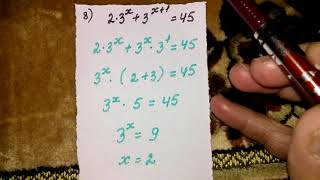 8) 2·3ˣ+3ˣ⁺¹=45
2·3ˣ+3ˣ·3¹=45
3ˣ·(2+3)=45
3ˣ·5=45
3ˣ=9
x=2